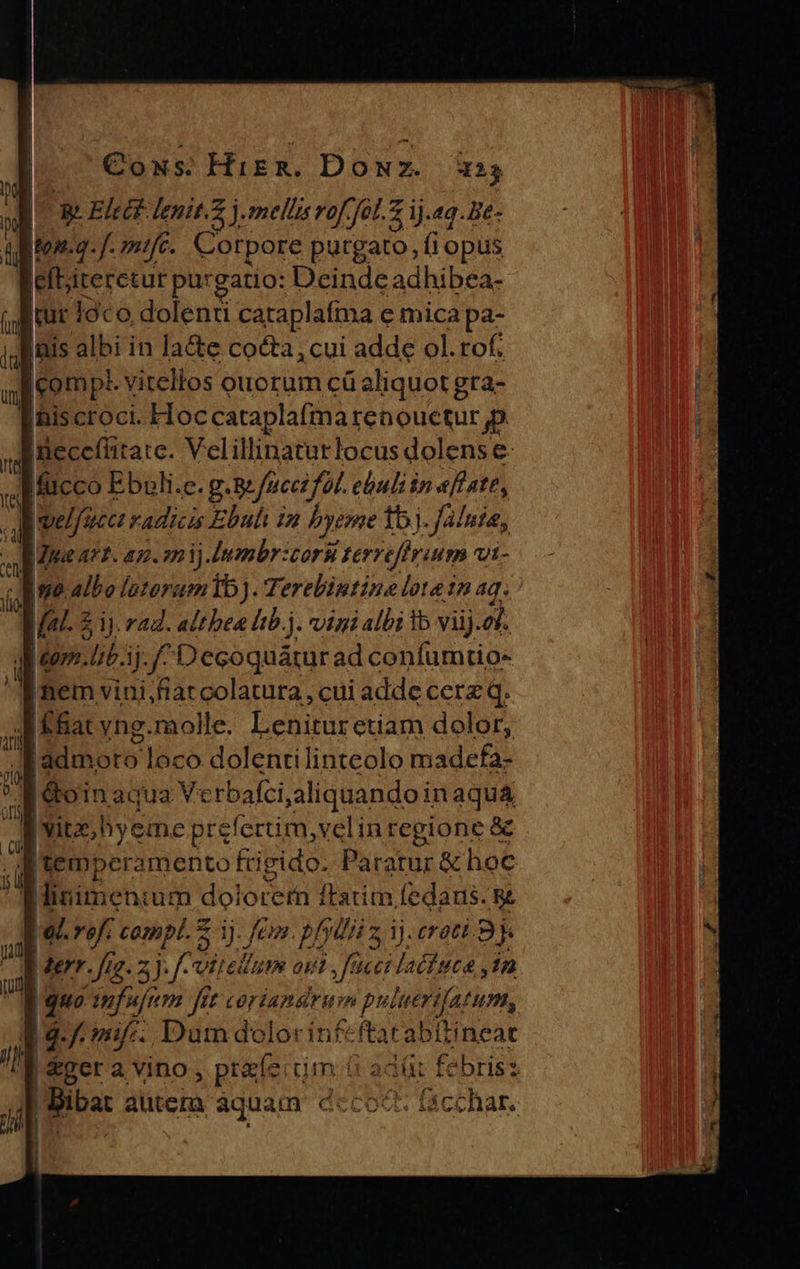 Cons. Hier. Donz.
℞. Elect. lenit. ℥ j. mellis ros. sol. ℥ ij. aq. Be-
ton. q. s. misc. Corpore purgato, si opus
est, iteretur purgatio: Deinde adhibea-
tur loco dolenti cataplasma e mica pa-
nis albi in lacte cocta, cui adde ol. ros.
compl. vitellos ouorum cū aliquot gra-
nis croci. Hoc cataplasma renouetur ꝓ
necessitate. Vel illinatur locus dolens e
succo Ebuli. e. g. ℞. succi fol. ebuli in æstate,
vel succi radicis Ebuli in hyeme ℔ j. saluiæ,
Iuæ art. an. m ij. lumbricorū terrestrium vi-
no albo lotorum ℔ j. Terebintinæ lotæ in aq.
sal. ℥ ij. rad. altheæ lib. j. vini albi ℔ viij. ol.
com. lib. ij. f. Decoquātur ad consumtio-
nem vini, fiat colatura, cui adde ceræ q.
s. fiat vng. molle. Lenitur etiam dolor,
admoto loco dolenti linteolo madefa-
cto in aqua Verbasci, aliquando in aqua
vitæ, hyeme presertim, vel in regione &
temperamento frigido. Paratur & hoc
linimentum dolorem statim sedans. ℞.
ol. ros. compl. ℥ ij. sem. psyllii ʒ ij. croci ℈ j.
terr. sig. ʒ j. s. vitellum oui, succi lactucæ, in
quo infusum sit coriandrum puluerisatum,
q. s. misc. Dum dolor infestat abstineat
æger a vino, præsertim si adsit febris:
Bibat autem aquam decoct. sacchar.